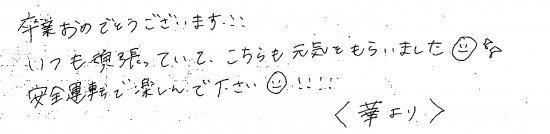 卒業おめでとうございます!!!
いつも頑張っていて、こちらも元気をもらいました
安全運転で楽しんで下さい!!!!
<華より>